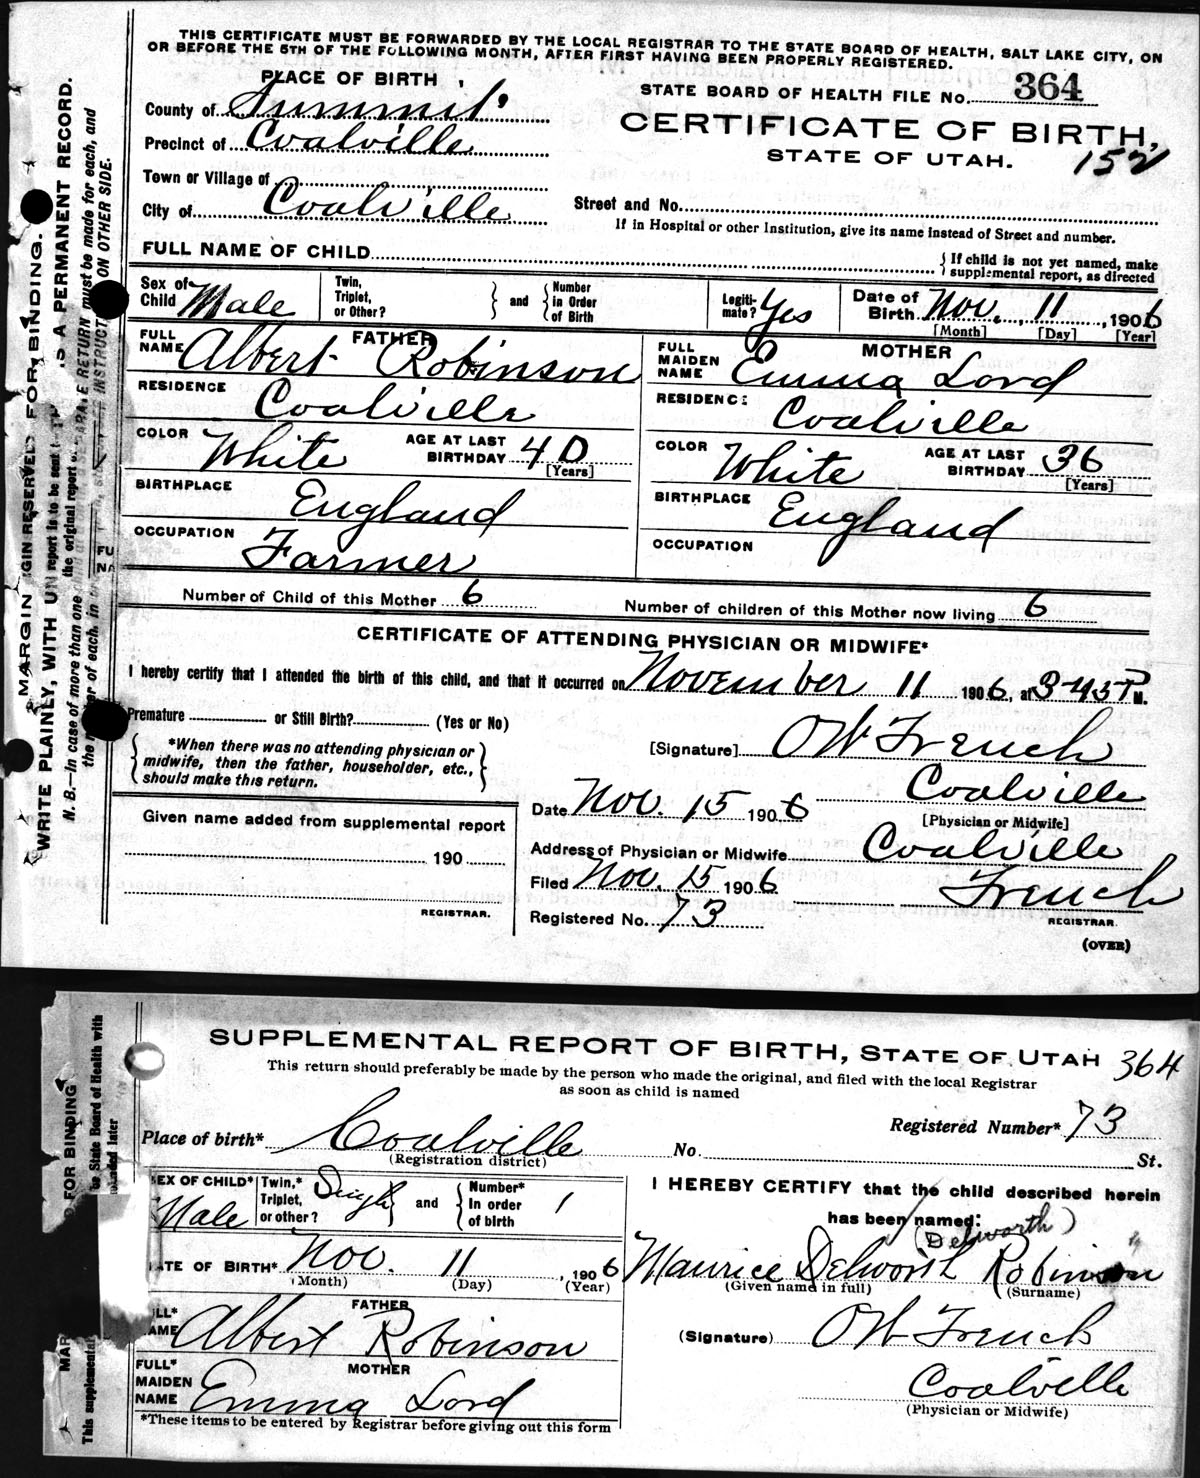 THIS CERTIFICATE MUST BE FORWARDED BY THE LOCAL REGISTRAR TO THE STATE BOARD OF HEALTH, SALT LAKE CITY, ON
OR BEFORE THE 5TH OF THE FOLLOWING MONTH, AFTER FIRST HAVING BEEN PROPERLY REGISTERED.
PLACE OF BIRTH
STATE BOARD OF HEALTH FILE No. 364
County of Summit
CERTIFICATE OF BIRTH,
Precinct of Coalville
STATE OF UTAH. 152
Town or Village of
City of Coalville
Street and No.
If in Hospital or other Institution, give its name instead of Street and number.
FULL NAME OF CHILD
{ If child is not yet named, make
supplemental report, as directed
Sex of Child Male
Twin, Triplet, or Other? } and { Number in Order of Birth
Legitimate? Yes
Date of Birth Nov. 11, 1906
[Month] [Day] [Year]
FATHER
FULL NAME Albert Robinson
MOTHER
FULL MAIDEN NAME Emma Lord
RESIDENCE Coalville
RESIDENCE Coalville
COLOR White AGE AT LAST BIRTHDAY 40 [Years]
COLOR White AGE AT LAST BIRTHDAY 36 [Years]
BIRTHPLACE England
BIRTHPLACE England
OCCUPATION Farmer
OCCUPATION
Number of Child of this Mother 6
Number of children of this Mother now living 6
CERTIFICATE OF ATTENDING PHYSICIAN OR MIDWIFE*
I hereby certify that I attended the birth of this child, and that it occurred on November 11 1906, at 3-45 P M.
Premature or Still Birth? (Yes or No)
*When there was no attending physician or
midwife, then the father, householder, etc.,
should make this return.
[Signature] O W French
Coalville
[Physician or Midwife]
Date Nov. 15 1906
Given name added from supplemental report
190
REGISTRAR.
Address of Physician or Midwife Coalville
Filed Nov. 15 1906 French
REGISTRAR.
Registered No. 73
(OVER)
MARGIN RESERVED FOR BINDING.
WRITE PLAINLY, WITH UN IS A PERMANENT RECORD.
N. B.—In case of more than one
SUPPLEMENTAL REPORT OF BIRTH, STATE OF UTAH 364
This return should preferably be made by the person who made the original, and filed with the local Registrar
as soon as child is named
Registered Number* 73
Place of birth* Coalville No. St.
(Registration district)
SEX OF CHILD* Male
Twin,* Triplet, or other? Single } and { Number* In order of birth 1
I HEREBY CERTIFY that the child described herein
has been named:
(Delworth)
Maurice Delworth Robinson
(Given name in full) (Surname)
DATE OF BIRTH* Nov. 11, 1906
(Month) (Day) (Year)
FATHER
FULL* NAME Albert Robinson
(Signature) O W French
MOTHER
FULL* MAIDEN NAME Emma Lord
Coalville
(Physician or Midwife)
*These items to be entered by Registrar before giving out this form
FOR BINDING